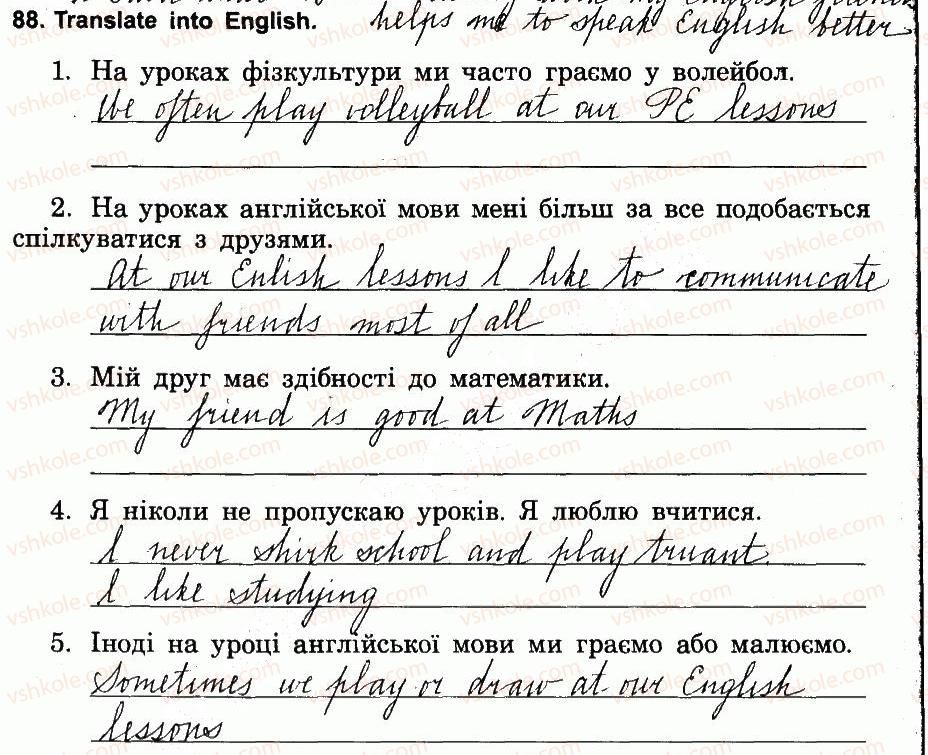 88. Translate into English. helps me to speak English better
1. На уроках фізкультури ми часто граємо у волейбол.
We often play volleyball at our PE lessons
2. На уроках англійської мови мені більш за все подобається
спілкуватися з друзями.
At our Enlish lessons I like to communicate
with friends most of all
3. Мій друг має здібності до математики.
My friend is good at Maths
4. Я ніколи не пропускаю уроків. Я люблю вчитися.
I never shirk school and play truant.
I like studying
5. Іноді на уроці англійської мови ми граємо або малюємо.
Sometimes we play or draw at our English
lessons
vshkole.com